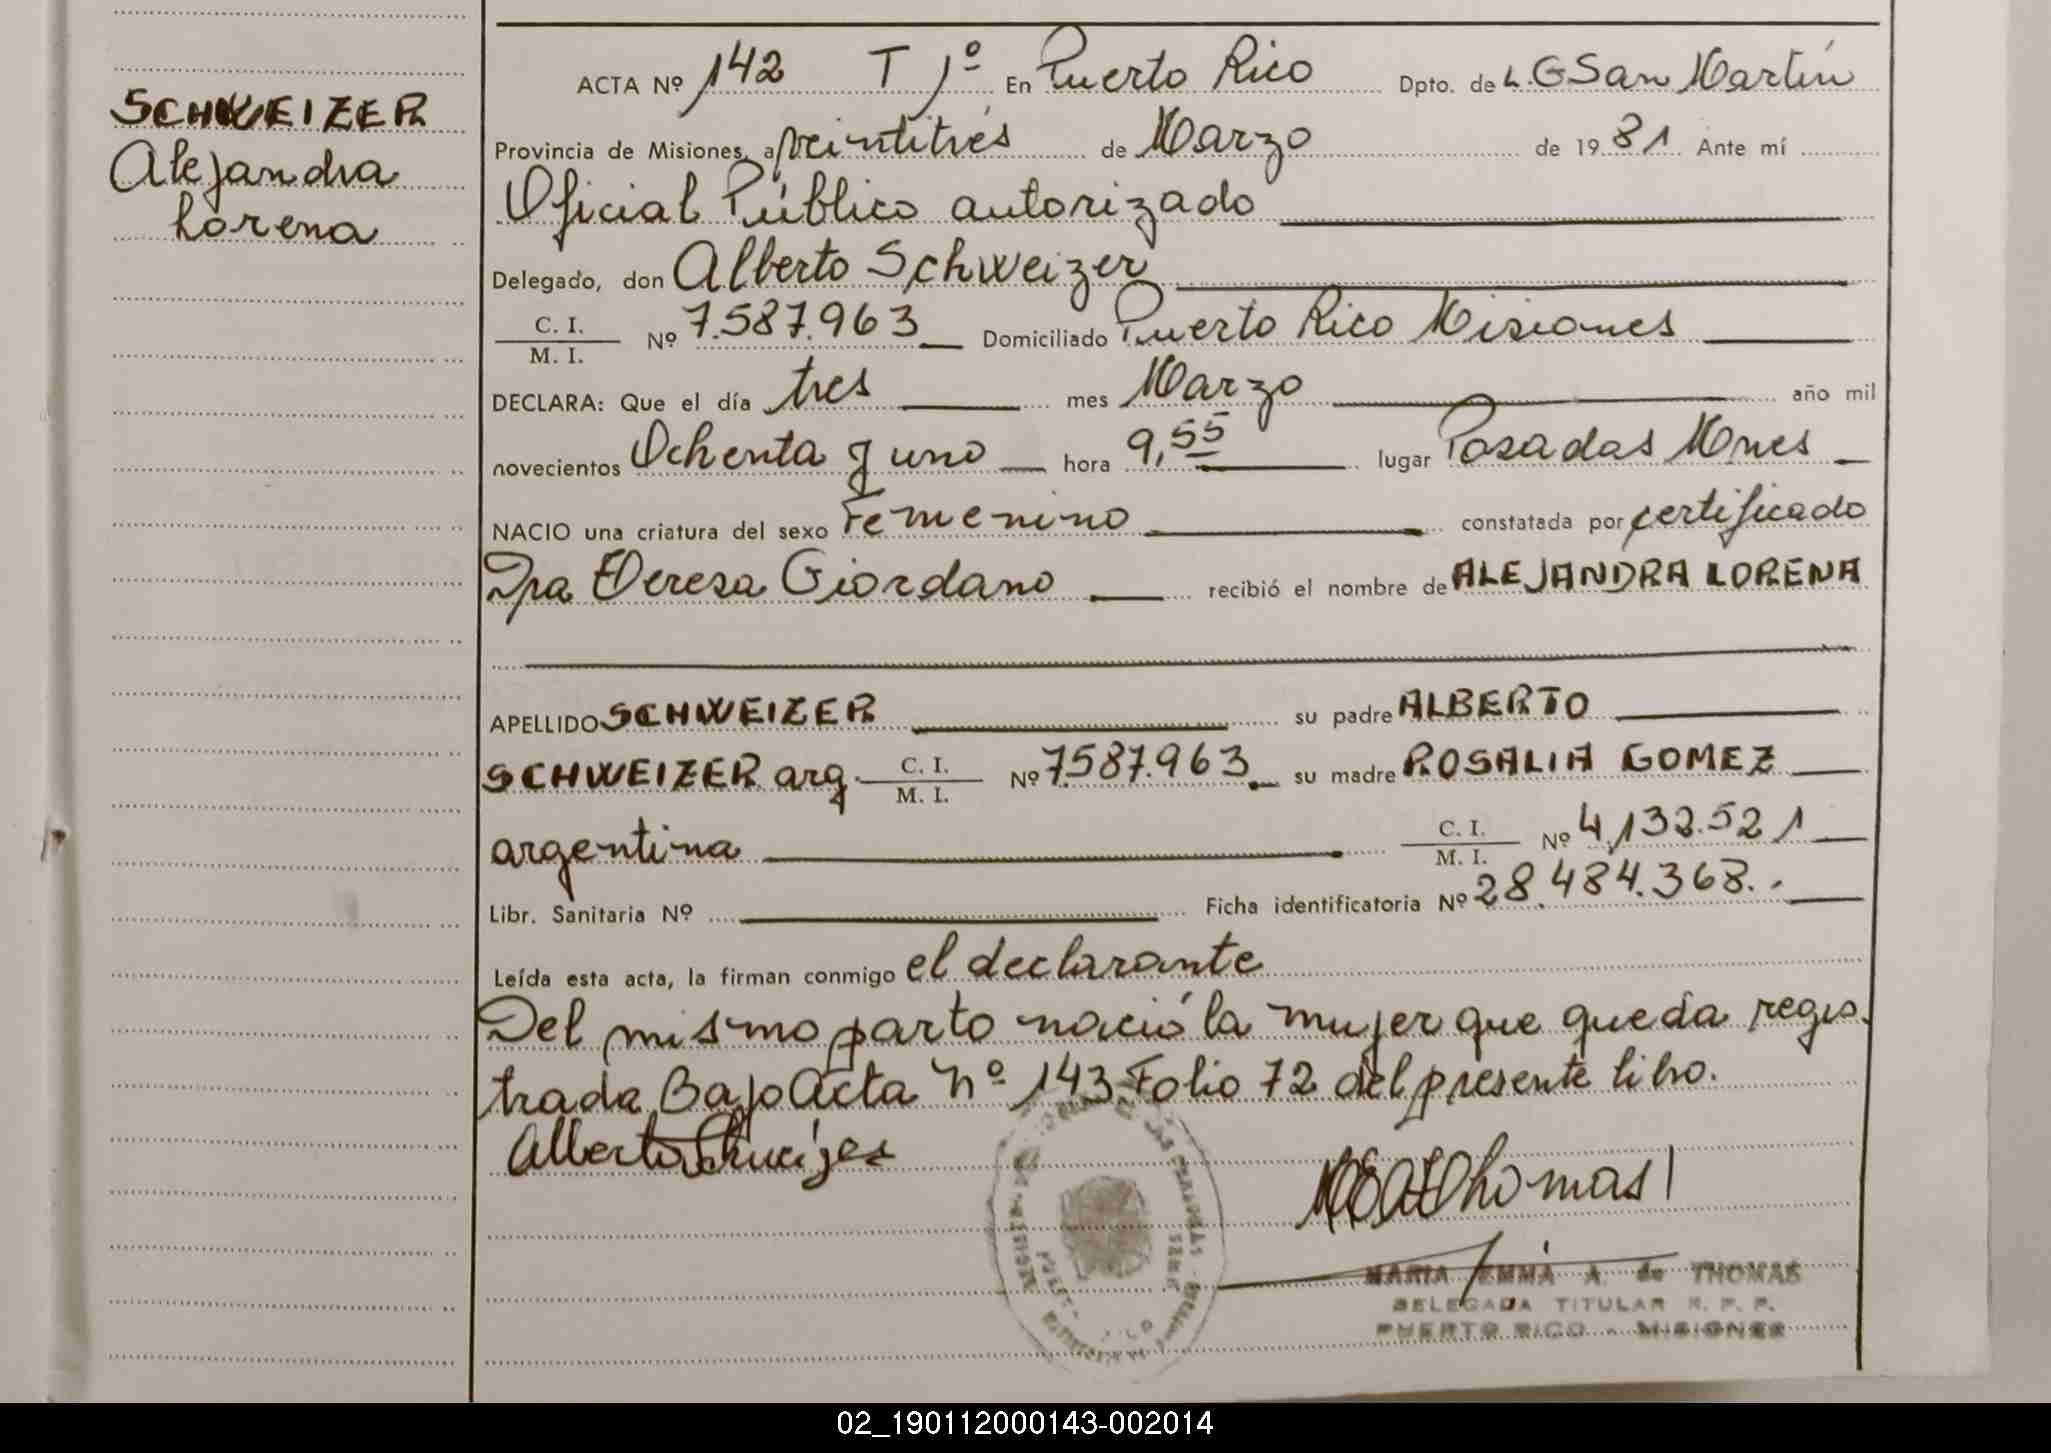 SCHWEIZER
Alejandra
Lorena
ACTA Nº 142 T 1º En Puerto Rico Dpto. de L. G San Martín
Provincia de Misiones, a veintitrés de Marzo de 1981 Ante mí
Oficial Público autorizado
Delegado, don Alberto Schweizer
C. I.
M. I. Nº 7.587.963 Domiciliado Puerto Rico Misiones
DECLARA: Que el día tres mes Marzo año mil
novecientos Ochenta y uno hora 9,55 lugar Posadas Mnes
NACIO una criatura del sexo Femenino constatada por certificado
Dra Teresa Giordano recibió el nombre de ALEJANDRA LORENA
APELLIDO SCHWEIZER su padre ALBERTO
SCHWEIZER arg. C. I. M. I. Nº 7587.963 su madre ROSALIA GOMEZ
argentina C. I. M. I. Nº 4,132.521
Libr. Sanitaria Nº Ficha identificatoria Nº 28.484.368.
Leída esta acta, la firman conmigo el declarante
Del mismo parto nació la mujer que queda regis.
trada Bajo Acta Nº 143 Folio 72 del presente libro.
Alberto Schweizer
Thomas
MARIA EMMA A. de THOMAS
DELEGADA TITULAR R. P. P.
PUERTO RICO - MISIONES
02_190112000143-002014